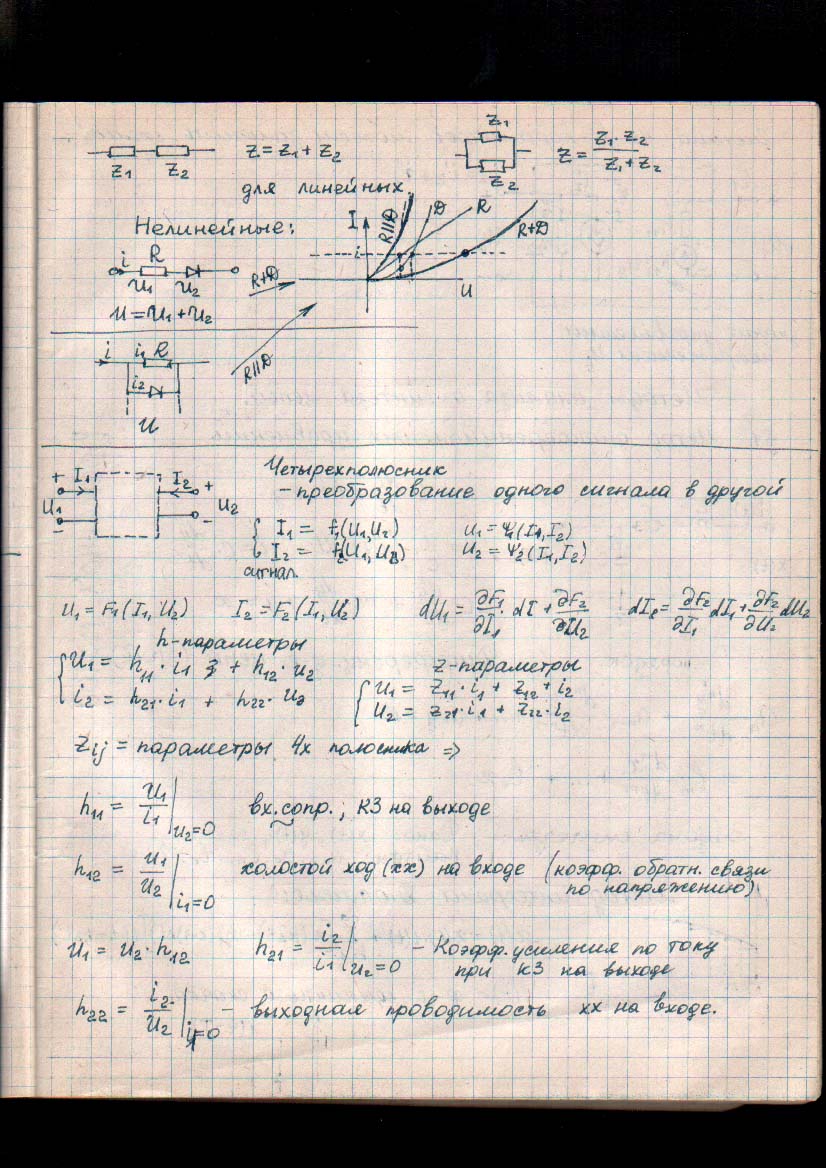 Z₁ Z₂ Z = Z₁ + Z₂
Z₁ Z₂ Z = Z₁·Z₂ / Z₁+Z₂
для линейных
Нелинейные:
i R U₁ U₂
U = U₁ + U₂
R+D
I R||D D R R+D
i
U
i i₁ R
i₂
U
R||D
+ I₁ I₂ +
U₁ U₂
- -
Четырехполюсник
- преобразование одного сигнала в другой
I₁ = f₁(U₁,U₂) U₁ = Ψ₁(I₁,I₂)
I₂ = f₂(U₁,U₂) U₂ = Ψ₂(I₁,I₂)
сигнал.
U₁ = F₁(I₁,U₂) I₂ = F₂(I₁,U₂) dU₁ = ∂F₁/∂I₁ · dI + ∂F₂/∂U₂ dI₂ = ∂F₂/∂I₁ dI₁ + ∂F₂/∂U₂ dU₂
h-параметры
U₁ = h₁₁·i₁ + h₁₂·u₂
i₂ = h₂₁·i₁ + h₂₂·u₂
z-параметры
U₁ = Z₁₁·i₁ + Z₁₂+i₂
U₂ = Z₂₁·i₁ + Z₂₂·i₂
Zij = параметры 4х полюсника =>
h₁₁ = U₁/i₁ | U₂=0 вх.сопр., КЗ на выходе
h₁₂ = U₁/U₂ | i₁=0 холостой ход (хх) на входе (коэфф. обратн. связи
по напряжению)
U₁ = U₂·h₁₂ h₂₁ = i₂/i₁ | U₂=0 - Коэфф. усиления по току
при КЗ на выходе
h₂₂ = i₂/U₂ | i₁=0 - выходная проводимость хх на входе.